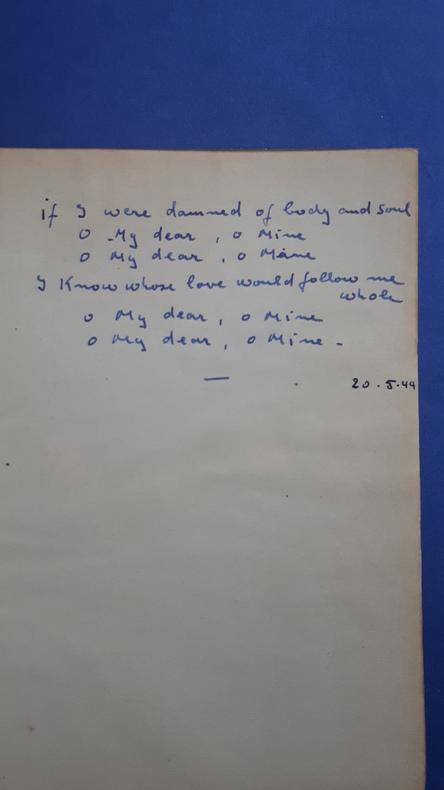 if I were damned of body and soul
o My dear, o Mine
o My dear, o Mine
I Know whose love would follow me
whole
o My dear, o Mine
o My dear, o Mine -
20.5.44